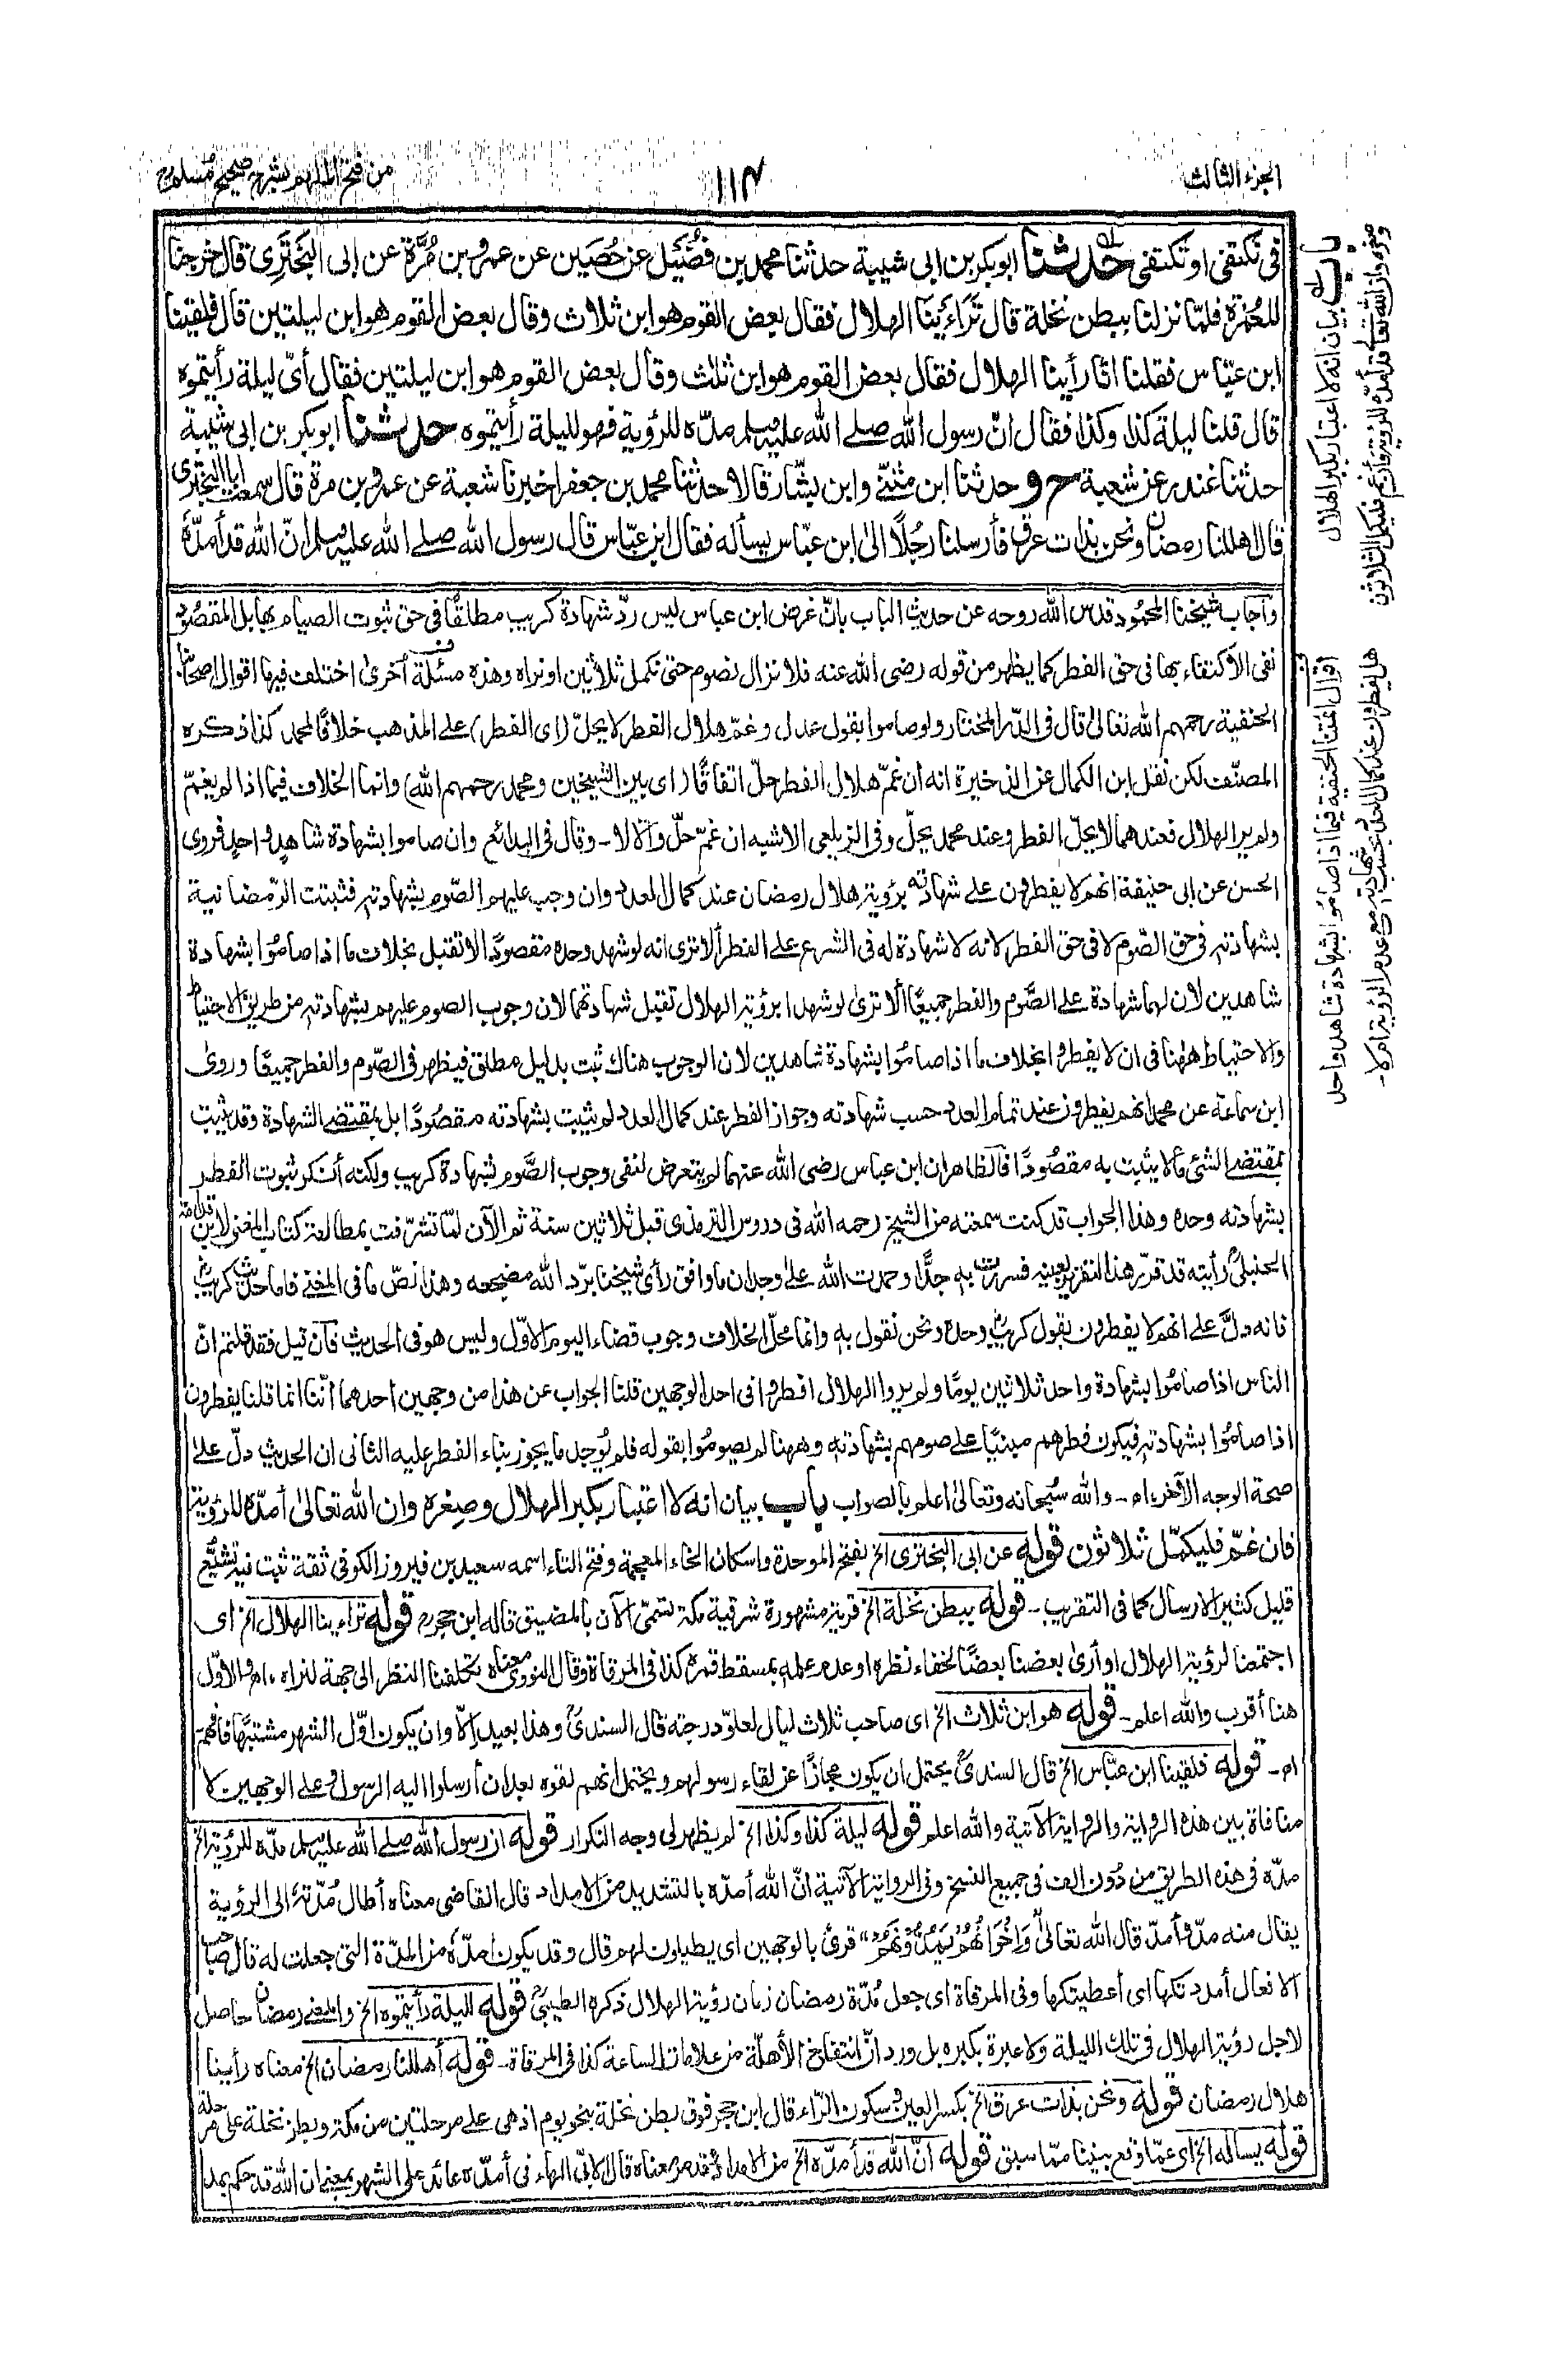 الجزء الثالث
١١٣
من فتح الملهم بشرح صحيح مسلم
فى نكتفى او تكتفى حدثنا ابوبكر بن ابى شيبة حدثنا محمد بن فضيل عن حصين عن عمرو بن مُرّة عن ابى البَخْتَرِى قال خرجنا
للعُمْرة فلمّا نزلنا ببطن نخلة قال تَرَاءَيْنَا الهلال فقال بعض القوم هو ابن ثلاث وقال بعض القوم هو ابن ليلتين قال فلقينا
ابن عبّاس فقلنا انّا رأينا الهلال فقال بعض القوم هو ابن ثلث وقال بعض القوم هو ابن ليلتين فقال أىّ ليلة رأيتموه
قال قلنا ليلة كذا وكذا فقال انّ رسول الله صلے الله عليه وسلم مدّه للرؤية فهو لليلة رأيتموه حدثنا ابوبكر بن ابى شيبة
حدثنا غندر عن شعبة ح و حدثنا ابن مثنّے وابن بشّار قالا حدثنا محمد بن جعفر اخبرنا شعبة عن عمرو بن مرة قال سمعت ابا البختري
قال اهللنا رمضان ونحن بذات عرق فأرسلنا رجُلًا الى ابن عبّاس يسأله فقال ابن عبّاس قال رسول الله صلے الله عليه وسلم انّ الله قد أمدّه
وأجاب شيخنا المحمود قدس الله روحه عن حديث الباب بانّ غرض ابن عباس ليس ردّ شهادة كريب مطلقًا فى حق ثبوت الصيام بها بل المقصود
نفى الاكتفاء بها فى حق الفطر كما يظهر من قوله رضى الله عنه فلا نزال نصوم حتى نكمل ثلاثين او نراه وهذه مسئلة أخرى اختلفت فيها اقوال اصحابنا
الحنفية رحمهم الله تعالى قال فى الدّر المختار ولو صاموا بقول عدل وغمّ هلال الفطر لا يحلّ (اى الفطر) على المذهب خلافًا لمحمد كذا ذكره
المصنّف لكن نقل ابن الكمال عن الذخيرة انه ان غمّ هلال الفطر حلّ اتفاقًا (اى بين الشيخين ومحمد رحمهم الله) وانما الخلاف فيما اذا لم يغمّ
ولم ير الهلال فعندهما لا يحلّ الفطر وعند محمد يحلّ وفى الزيلعى الاشبه ان غمّ حلّ والّا لا - وقال فى البدائع وان صاموا بشهادة شاهد واحد فروى
الحسن عن ابى حنيفة انهم لا يفطرون على شهادته برؤية هلال رمضان عند كمال العدد وان وجب عليهم الصّوم بشهادته فثبتت الرّمضانية
بشهادته فى حق الصّوم لا فى حق الفطر لانه لا شهادة له فى الشرع على الفطر ألا ترى انه لو شهد وحده مقصودًا لا تقبل بخلاف ما اذا صاموا بشهادة
شاهدين لان لهما شهادة على الصَّوم والفطر جميعًا ألا ترى لو شهدا برؤية الهلال تقبل شهادتهما لان وجوب الصوم عليهم بشهادته من طريق الاحتياط
والاحتياط ههنا فى ان لا يفطروا بخلاف ما اذا صاموا بشهادة شاهدين لان الوجوب هناك ثبت بدليل مطلق فيظهر فى الصّوم والفطر جميعًا وروى
ابن سماعة عن محمد انهم يفطرون عند تمام العدد حسب شهادته وجواز الفطر عند كمال العدد لم يثبت بشهادته مقصودًا بل بمقتضے الشهادة وقد يثبت
بمقتضے الشئ ما لا يثبت به مقصودًا فالظاهر ان ابن عباس رضى الله عنهما لم يتعرض لنفى وجوب الصَّوم بشهادة كريب ولكنه أنكر ثبوت الفطر
بشهادته وحده وهذا الجواب قد كنت سمعته من الشيخ رحمه الله فى دروس الترمذى قبل ثلاثين سنة ثم الآن لمّا تشرّفت بمطالعة كتاب المغنى لابن قدامة
الحنبلى رأيته قد قرّر هذا التقرير بعينه فسررت به جدًّا وحمدت الله على وجدان ما وافق رأى شيخنا برّد الله مضجعه وهذا نصّ ما فى المغنى فاما حديث كريب
فانه دلّ على انهم لا يفطرون بقول كريب وحده ونحن نقول به وانما محلّ الخلاف وجوب قضاء اليوم الاوّل وليس هو فى الحديث فان قيل فقد قلتم انّ
الناس اذا صاموا بشهادة واحد ثلاثين يومًا ولم يروا الهلال افطروا فى احد الوجهين قلنا الجواب عن هذا من وجهين احدهما أنّنا انما قلنا يفطرون
اذا صاموا بشهادته فيكون فطرهم مبنيًّا على صومهم بشهادته وههنا لم يصوموا بقوله فلم يُوجد ما يجوز بناء الفطر عليه الثانى ان الحديث دلّ على
صحة الوجه الآخر، اه - والله سُبحانه وتعالى اعلم بالصواب باب بيان انه لا اعتبار بكبر الهلال وصغره وان الله تعالى أمدّه للرؤية
فان غمّ فليكمّل ثلاثون قوله عن ابى البختري الخ بفتح الموحدة واسكان الخاء المعجمة وفتح التاء اسمه سعيد بن فيروز الكوفى ثقة ثبت فيه تشيُّع
قليل كثير الارسال كما فى التقريب - قوله ببطن نخلة الخ قرية مشهورة شرقية مكة تسمّى الآن بالمضيق قاله ابن حجر قوله تراءينا الهلال الخ اى
اجتمعنا لرؤية الهلال او أرى بعضنا بعضًا لخفاء نظره او عدم علمه بمسقط قمره كذا فى المرقاة وقال النووى معناه تكلفنا النظر الى جهة لنراه، اه والاوّل
هنا أقرب والله اعلم - قوله هو ابن ثلاث الخ اى صاحب ثلاث ليال لعلوّ درجته قال السندى وهذا بعيد إلّا وان يكون اوّل الشهر مشتبهًا فافهم
اه - قوله فلقينا ابن عبّاس الخ قال السندى يحتمل ان يكون مجازًا عن لقاء رسولهم ويحتمل انهم لقوه بعد ان أرسلوا اليه الرسول وعلى الوجهين لا
منافاة بين هذه الرواية والرواية الآتية والله اعلم قوله ليلة كذا وكذا الخ لم يظهر لى وجه التكرار قوله ان رسول الله صلے الله عليه وسلم مدّه للرؤية الخ
مدّه فى هذه الطريق من دُون الف فى جميع النسخ وفى الرواية الآتية انّ الله أمدّه بالتشديد من الامداد قال القاضى معناه أطال مُدّته الى الرؤية
يقال منه مدّ وأمدّ قال الله تعالى وَإِخْوَانُهُمْ يَمُدُّوْنَهُمْ" قرئ بالوجهين اى يطيلون لهم قال وقد يكون امدّه من المدّة التى جعلت له قال صاحب
الافعال أمددتكها اى أعطيتكها وفى المرقاة اى جعل مُدّة رمضان زمان رؤية الهلال ذكره الطيبى قوله لليلة رأيتموه الخ والمعنى رمضان حاصل
لاجل رؤية الهلال فى تلك الليلة ولا عبرة بكبره بل ورد انّ انتفاخ الأهلّة من علامات الساعة كذا فى المرقاة - قوله أهللنا رمضان الخ معناه رأينا
هلال رمضان قوله ونحن بذات عرق الخ بكسر العين وسكون الرّاء قال ابن حجر فوق بطن نخلة بنحو يوم اذ هى على مرحلتين من مكة وبطن نخلة على مرحلة
قوله يسأله الخ اى عمّا وقع بيننا ممّا سبق قوله انّ الله قد أمدّه الخ من الامداد وقد مر معناه قال الابّى الهاء فى أمدّه عائد على الشهر بمعنى ان الله قد حكم بمد
باب بيان انه لا اعتبار بكبر الهلال
وصغره وان الله تعالى قد أمدّه للرؤية فان غم فليكمل الثلاثون
اقوال ائمتنا الحنفية فيما اذا صاموا بشهادة شاهد واحد
هل يفطرون عند كمال العدد بحسب شهادته مع عدم الرؤية ام لا -